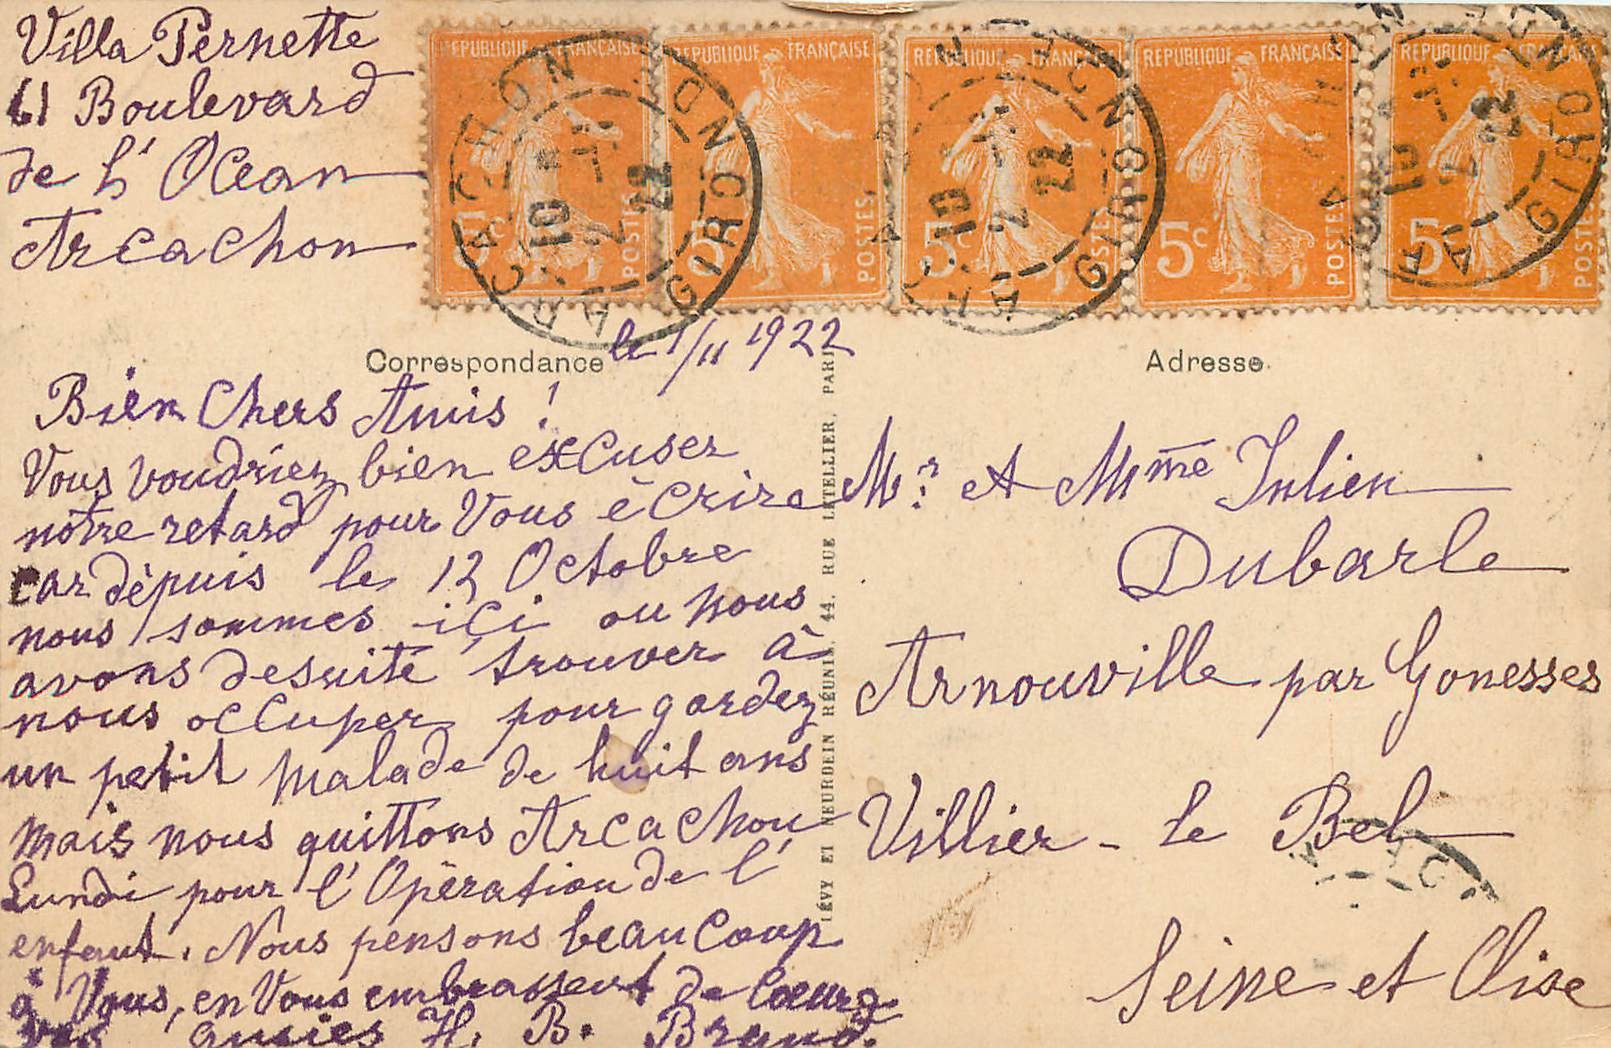 Villa Pernette
61 Boulevard
de L'Ocean
Arcachon
REPUBLIQUE FRANÇAISE
5c
POSTES
REPUBLIQUE FRANÇAISE
5c
POSTES
REPUBLIQUE FRANÇAISE
5c
POSTES
REPUBLIQUE FRANÇAISE
5c
POSTES
REPUBLIQUE FRANÇAISE
5c
POSTES
ARCACHON
GIRONDE
22
ARCACHON
GIRONDE
22
ARCACHON
GIRONDE
22
Correspondance
le 1/11 1922
Bien Chers Amis !
Vous voudriez bien excuser
notre retard pour Vous ècrire
car dèpuis le 12 Octobre
nous sommes ici ou nous
avons desuite trouver à
nous occuper pour gardez
un petit malade de huit ans
mais nous quittons Arcachon
Lundi pour l'Opèration de l'
enfant. Nous pensons beaucoup
à Vous, en Vous embrassent de Coeur
vos amies H. B. Brand.
LÉVY ET NEURDEIN RÉUNIS, 44, RUE LETELLIER, PARIS
Adresse
Mr et Mme Julien
Dubarle
Arnouville par Gonesses
Villier-le Bel
Seine et Oise